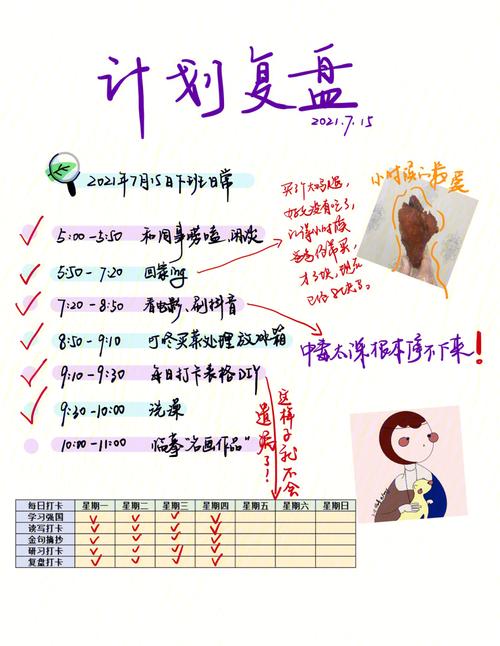 计划复盘
2021.7.15
2021年7月15日下班日常
小时候的最爱
买了个大鸡翅,
好久没有吃了,
记得小时候
爸爸经常买,
才3块,现在
已经8块了。
5:00-5:50 和同事唠嗑、闲谈
5:50-7:20 回家ing
7:20-8:50 看电影、刷抖音
中毒太深根本停不下来!
8:50-9:10 叮咚买菜处理放冰箱
9:10-9:30 每日打卡表格DIY
9:30-10:00 洗澡
10:00-11:00 临摹“名画作品”
这样子就不会
遗漏了!
每日打卡 星期一 星期二 星期三 星期四 星期五 星期六 星期日
学习强国 ✓ ✓ ✓ ✓
读写打卡 ✓ ✓ ✓ ✓
金句摘抄 ✓ ✓ ✓ ✓
研习打卡 ✓ ✓ ✓ ✓
复盘打卡 ✓ ✓ ✓ ✓